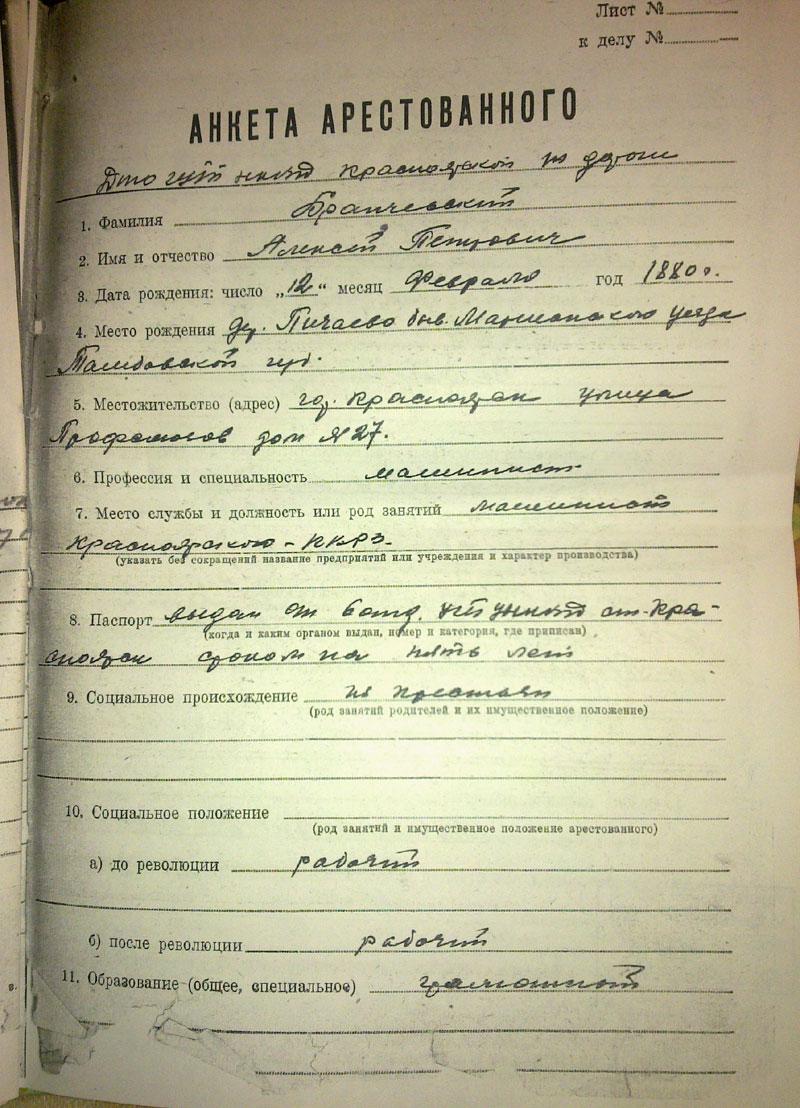 Лист №
к делу №
АНКЕТА АРЕСТОВАННОГО
Дто ГУГБ НКВД Красноярской жд дороги
1. Фамилия Бранчевский
2. Имя и отчество Алексей Петрович
3. Дата рождения: число „12“ месяц Февраля год 1880 г.
4. Место рождения дер. Пичаево быв. уезда
Тамбовской губ.
5. Местожительство (адрес) гор. Красноярск улица
Профсоюзов дом №27.
6. Профессия и специальность машинист
7. Место службы и должность или род занятий машинист
Красноярского - ПВРЗ.
(указать без сокращений название предприятий или учреждения и характер производства)
8. Паспорт выдан 6 отд. НКВД ст. Кра-
(когда и каким органом выдан, номер и категория, где приписан)
сноярск сроком на пять лет
9. Социальное происхождение из крестьян
(род занятий родителей и их имущественное положение)
10. Социальное положение
(род занятий и имущественное положение арестованного)
а) до революции рабочий
б) после революции рабочий
11. Образование (общее, специальное) грамотный